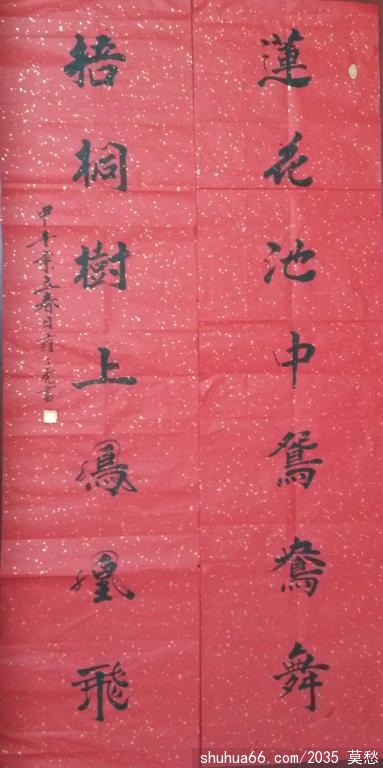 蓮花池中鴛鴦舞
梧桐樹上鳳凰飛
shuhua66.com/2035 莫愁